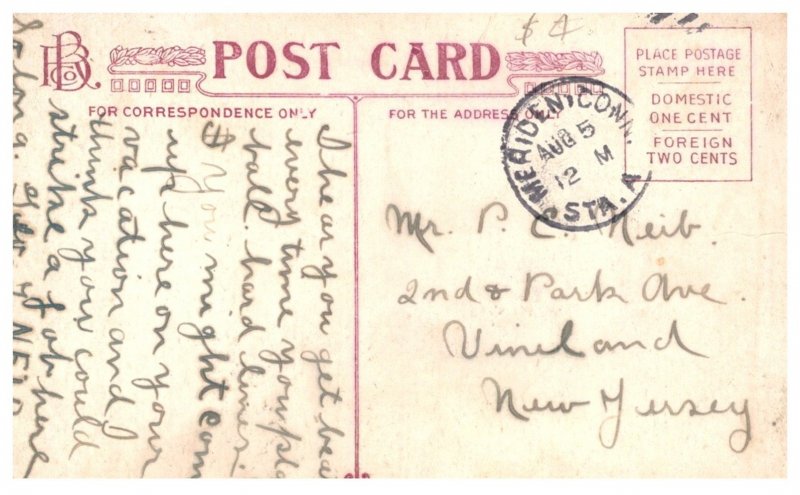 $ 4
BRCo.
POST CARD
FOR CORRESPONDENCE ONLY
FOR THE ADDRESS ONLY
PLACE POSTAGE
STAMP HERE
DOMESTIC
ONE CENT
FOREIGN
TWO CENTS
MERIDEN, CONN.
AUG 5
12 M
STA. A
Mr. P. C. Neib.
2nd & Park Ave.
Vineland
New Jersey
I hear you get bea
every time you pla
ball. hard lines.
You might com
up here on your
vacation and I
think you could
strike a job here
So long.